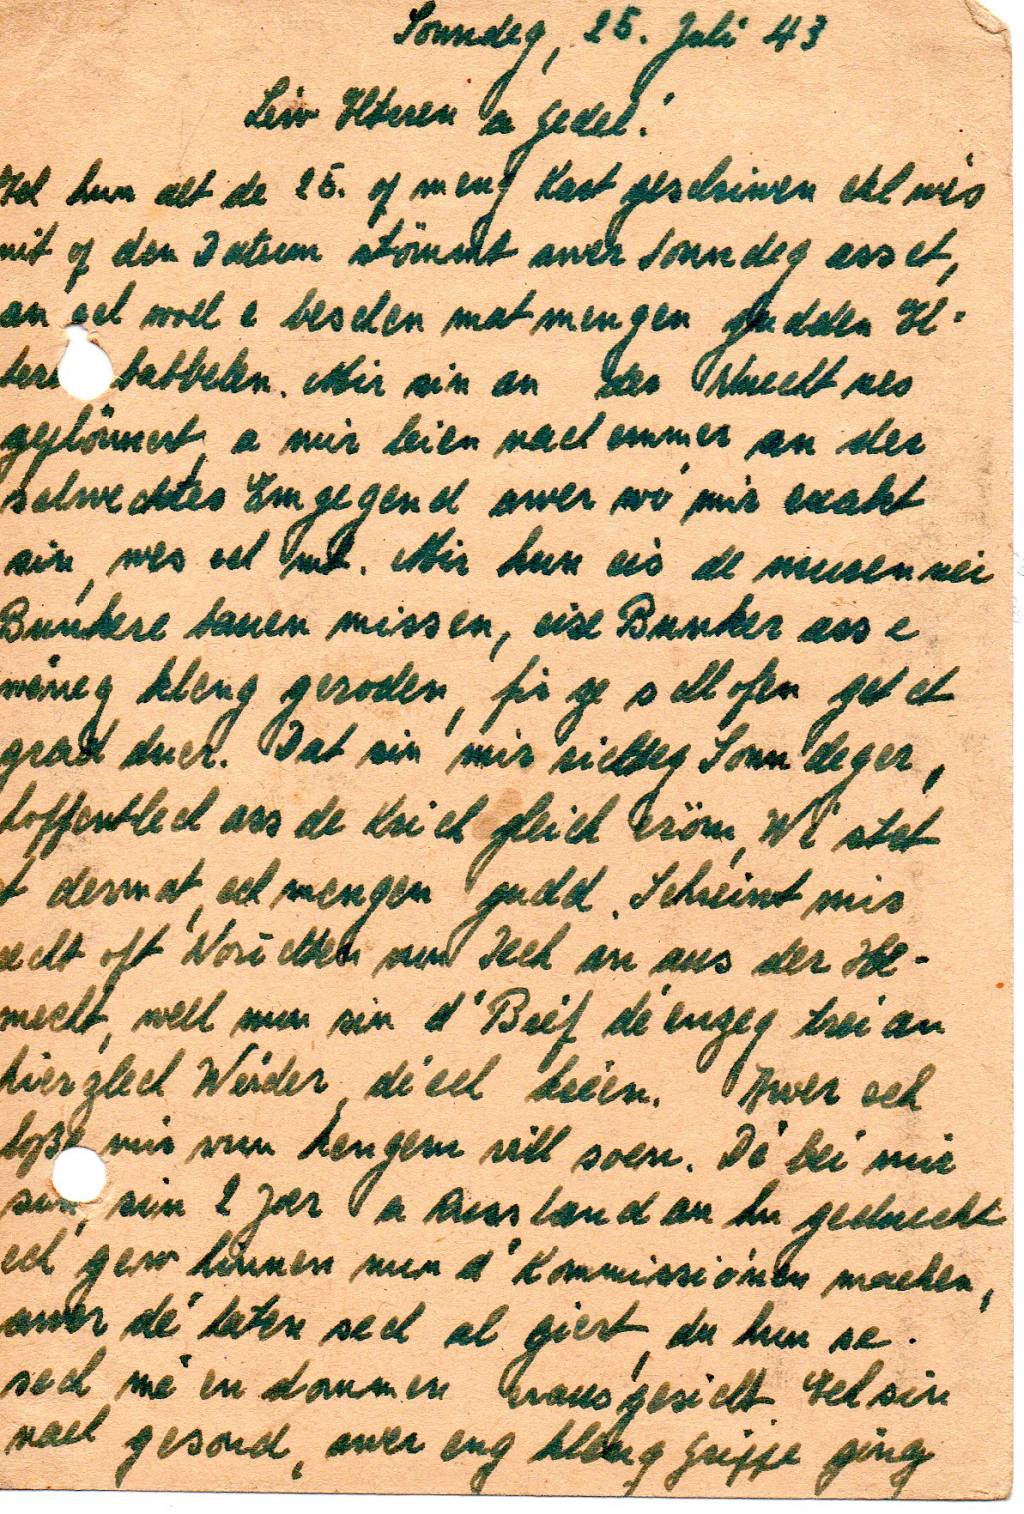 Sonndeg, 25. Juli 43
Leiw Eltren a Jedel!
Ech hun elt de 25. op meng Kart geschriwen ech wés
nit op den Datum stömmt awer Sonndeg ass et,
an ech woll e beschen mat mengen gudden El-
tere babbelen. Mir sin an der Nuecht nes
gestörmert, a mir leien nach emmer an der
selwechter Emgegend awer wó mir exakt
sin, wes ech nit. Mir hun eis de muer nei
Bunkere bauen missen, eise Bunker ass e
wéneg kleng geroden, fir ze schlofen get et
grad duer. Dat sin mir richteg Sonndeger,
hoffentlech ass de Krich gleich eröm, Wé stet
t dermat, ech mengen gudd. Schreiwt mir
recht oft Norichten vun Iech an aus der He-
mecht, well nun sin d'Bréf dé enzeg trei an
hierzlech Wierder, dé ech héren. Awer ech
loße mir vun kengem vill soen. Dé bei mir
sin, sin 2 Joer a Russland an hu geduecht
ech gew hinnen nun d'Kommissiónen machen,
awer dé haten sech al giert, du hun se
sech mé en dommen erausgesicht Ech sin
nach gesond, awer eng kleng Grippe ging